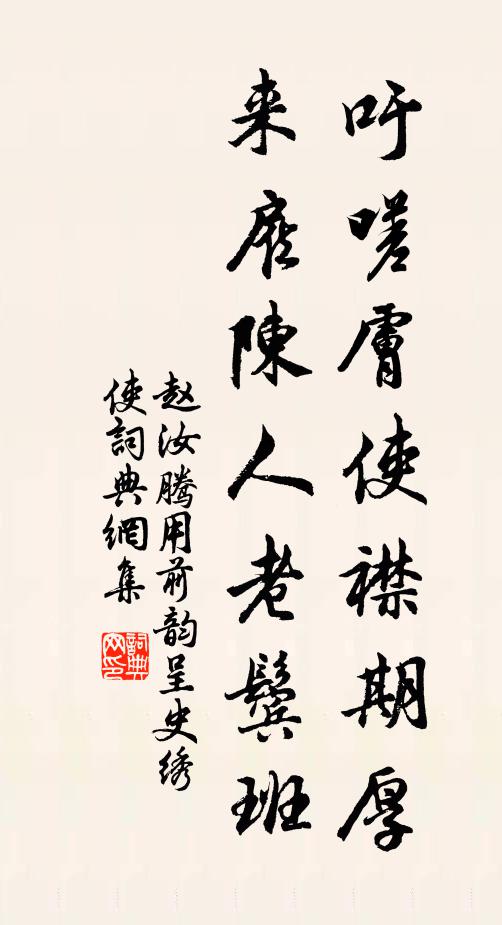 吁嗟膚使襟期厚
来廁陳人老鬢班
赵汝腾用前韵呈史绣
使詞典網集
詞典網印